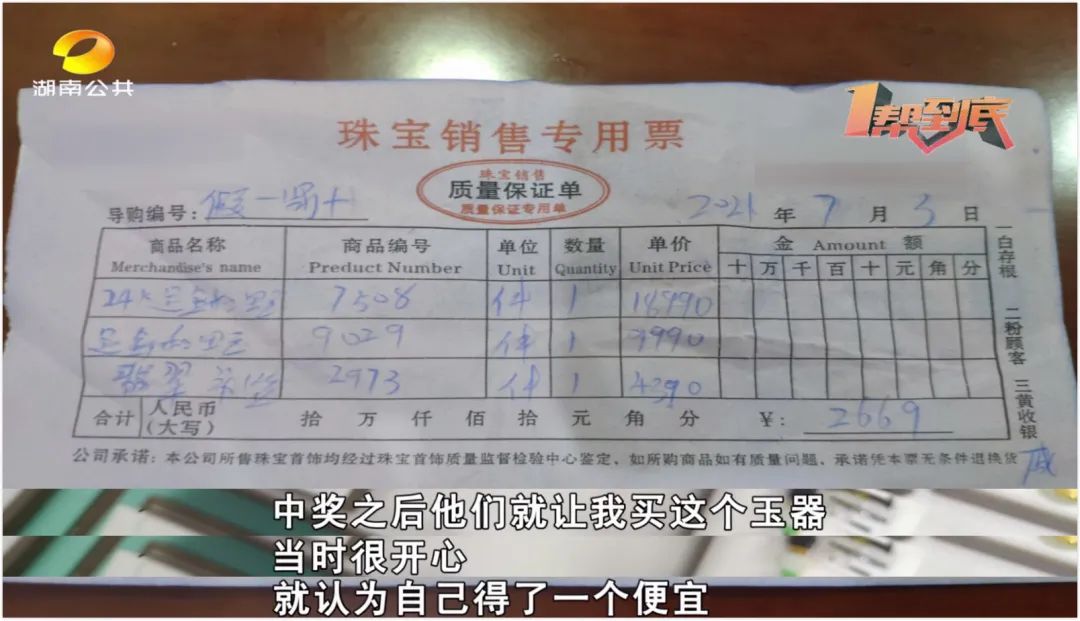 湖南公共
1帮到底
珠宝销售专用票
珠宝销售
质量保证单
质量保证专用单
导购编号：假一罚十
2021年7月3日
商品名称 商品编号 单位 数量 单价 金 Amount 额
Merchandise's name Preduct Number Unit Quantity Unit Price 十 万 千 百 十 元 角 分
24K足金和田玉 7508 件 1 18990
足金和田玉 9029 件 1 9990
翡翠 2973 件 1 4390
合计 人民币(大写) 拾 万 仟 佰 拾 元 角 分 ￥: 2669
公司承诺：本公司所售珠宝首饰均经过珠宝首饰质量监督检验中心鉴定，如所购商品如有质量问题，承诺凭本票无条件退换货
一白存根 二粉顾客 三黄收银
中奖之后他们就让我买这个玉器
当时很开心
就认为自己得了一个便宜